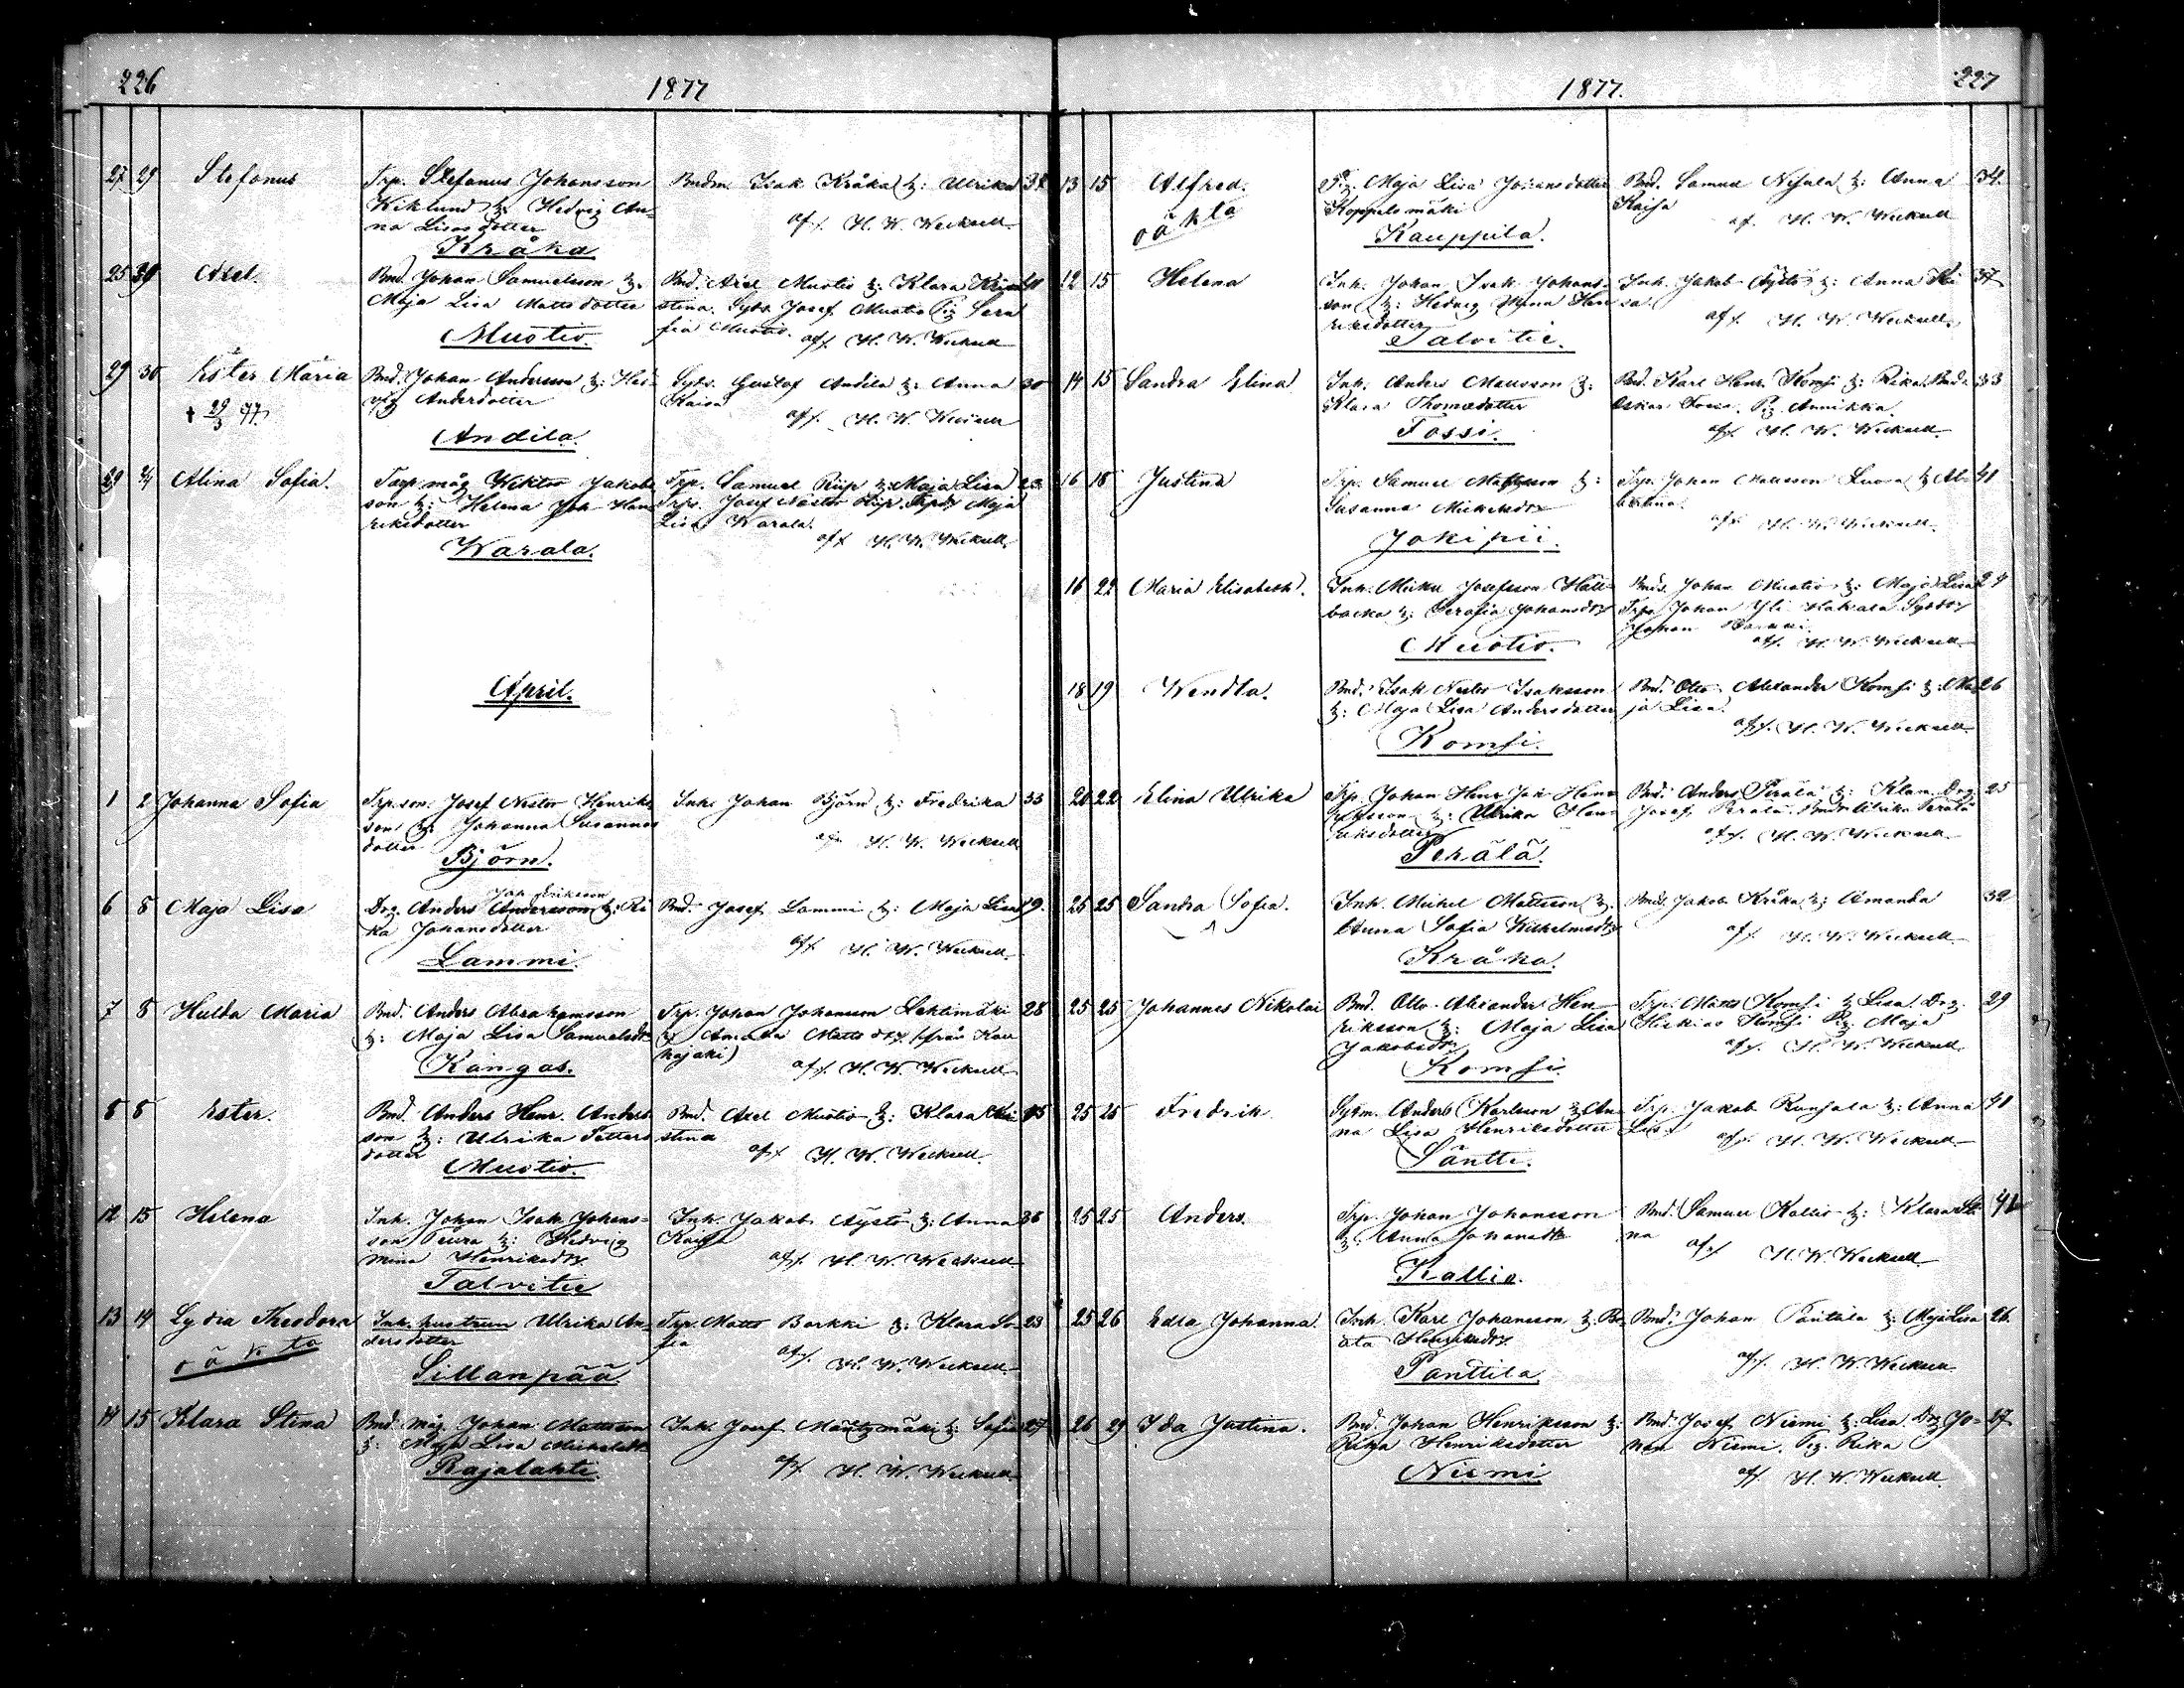 226
1877
27 29 Stefanus
Trp. Stefanus Johansson
Wiklund &: Hedvig An-
na Lisasdotter
Kråka
Bndm Isak Kråka &: Ulrika
af/. H. W. Wecksell
25 30 Axel.
Bnd. Johan Samuelsson &:
Maja Lisa Mattsdotter
Muotio.
Bnd. Axel Muotio &: Klara Kri
stina. Josef Muotio Pig Sera
fia Muotio. af/. H. W. Wecksell
29 30 Ester Maria
† 29/3 77.
Bnd. Johan Andersson &: Hed-
vig Andersdotter
Andila.
Gustaf Andila &: Anna 30
Kaisa
af/. H. W. Wecksell
29 Alina Sofia.
måg Wiktor Jakobs
son &: Helena Joh Hen
riksdotter
Warala.
Trp. Samuel Riip &: Maja Lisa 23
Trps. Josef Nestor Riip, Maja
Lisa Warala.
af/. H. W. Wecksell.
April.
1 2 Johanna Sofia
Trp.son Josef Nestor Henriks
son &: Johanna Susannas
dotter
Björn.
Inh: Johan Björn &: Fredrika 33
H. W. Wecksell
6 8 Maja Lisa
Joh. Eriksson
Drg. Anders Andersson &: Ri
ka Johansdotter
Lammi.
Bnd. Josef Lammi &: Maja Lisa
af/. H. W. Wecksell
7 8 Hulda Maria
Bnd. Anders Abrahamsson
&: Maja Lisa Samuelsdr
Kangas.
Trp. Johan Johansson Lahtimäki 28
&: Amanda Matts dr (från Kau
hajoki)
af/. H. W. Wecksell
8 8 Ester.
Bnd. Anders Henr. Anders
son &: Ulrika Petters
dotter
Muotio.
Bnd. Axel Muotio &: Klara Kri
stina
af/. H. W. Wecksell.
12 15 Helena
Inh. Johan Isak Johans-
son Peura &: Hedvig
Mina Henriksdr
Talvitie
Inh. Jakob Äystö &: Anna 36
Kaisa
af/. H. W. Wecksell
13 14 Lydia Theodora
oäkta
Inh. hustrun Ulrika An-
dersdotter
Sillanpää
Trp. Matts Barkki &: Klara So- 23
fia
af/. H. W. Wecksell
14 15 Klara Stina
Bnd. måg Johan Mattsson
&: Maja Lisa Mickelsdr
Rajalahti.
Inh. Josef Mäntymäki &: Sofia 27
af/. H. W. Wecksell
1877.
227
13 15 Alfred.
oäkta
Pig. Maja Lisa Johansdotter
Koppelomäki
Kauppila.
Bnd. Samuel Nisula &: Anna 34.
Kaisa
af. H. W. Wecksell
12 15 Helena
Inh. Johan Isak Johans-
son &: Hedvig Mina Hen
riksdotter
Talvitie.
Inh. Jakob Äystö &: Anna Kai 37
sa.
af/. H. W. Wecksell.
14 15 Sandra Elina
Inh. Anders Mattsson &:
Klara Thomædotter
Fossi.
Bnd. Karl Henr. Komsi &: Rika. Bnds 33
Oskar Fossi. Pig. Annikka.
af/. H. W. Wecksell.
16 18 Justina
Trp. Samuel Mattsson &:
Susanna Mickelsdr
Jokipii.
Trp. Johan Mattsson Luoma &: Al- 41
bertina.
af/. H. W. Wecksell.
16 22 Maria Elisabeth.
Inh. Mickel Josefsson
backa &: Serafia Johansdr
Muotio.
Bnds. Johan Muotio &: Maja Lisa 24
Trps. Johan Yli Hakala
Johan
af/. H. W. Wecksell
18 19 Wendla.
Bnd. Isak Nestor Isaksson
&: Maja Lisa Andersdotter
Komsi.
Bnd. Otto Alexander Komsi &: Ma 26
ja Lisa.
af/. H. W. Wecksell.
20 22 Elina Ulrika
Trp. Johan Henr Joh Hen
riksson &: Ulrika Hen
riksdotter
Perälä.
Bnd. Anders Perälä &: Klara. Drg. 25
Josef Perälä. Bnd Ulrika Perälä
af/. H. W. Wecksell
25 25 Sandra Sofia.
Inh. Mickel Mattsson &:
Anna Sofia Wilhelmsdr
Kråka.
Bnds. Jakob Kråka &: Amanda 32
af/. H. W. Wecksell
25 25 Johannes Nikolai
Bnd. Otto Alexander Hen-
riksson &: Maja Lisa
Jakobsdr
Komsi.
Trp. Matts Komsi &: Lisa. Drg. 29
Hiskias Komsi Pig. Maja
af/. H. W. Wecksell
25 25 Fredrik
Sytm. Anders Karlsson &: An-
na Lisa Henriksdotter
Säntti.
Trp. Jakob Runsala &: Anna 41
Lisa
af/. H. W. Wecksell
25 25 Anders.
Trp. Johan Johansson
&: Anna Johansdr
Kallio.
Bnd. Samuel Kallio &: Klara Sti
na
af/. H. W. Wecksell
25 26 Edla Johanna.
Inh. Karl Johansson &: Be-
ata Henriksdr
Panttila.
Bnd. Johan Panttila &: Maja Lisa 26
af/. H. W. Wecksell
26 29 Ida Justina.
Bnd. Johan Henriksson &:
Rika Henriksdotter
Niemi
Bnd. Josef Niemi &: Lisa. Drg Jo- 27
han Niemi. Pig. Rika
af/. H. W. Wecksell.